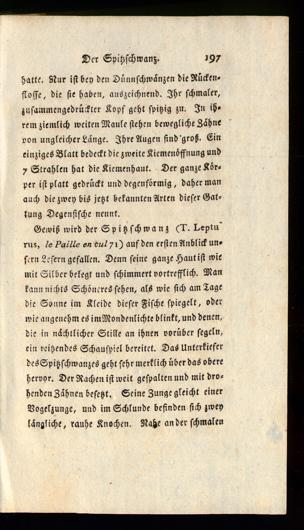 Der Spitzschwanz. 197
hatte. Nur ist bey den Dünnschwänzen die Rücken-
flosse, die sie haben, auszeichnend. Ihr schmaler,
zusammengedrückter Kopf geht spitzig zu. In ih-
rem ziemlich weiten Maule stehen bewegliche Zähne
von ungleicher Länge. Ihre Augen sind groß. Ein
einziges Blatt bedeckt die zweite Kiemenöffnung und
7 Strahlen hat die Kiemenhaut. Der ganze Kör-
per ist platt gedrückt und degenförmig, daher man
auch die zwey bis jetzt bekannten Arten dieser Gat-
tung Degenfische nennt.
Gewiß wird der Spitzschwanz (T. Leptu-
rus, le Paille en cul 71) auf den ersten Anblick un-
sern Lesern gefallen. Denn seine ganze Haut ist wie
mit Silber belegt und schimmert vortrefflich. Man
kann nichts Schöneres sehen, als wie sich am Tage
die Sonne im Kleide dieser Fische spiegelt, oder
wie angenehm es im Mondenlichte blinkt, und denen,
die in nächtlicher Stille an ihnen vorüber segeln,
ein reitzendes Schauspiel bereitet. Das Unterkiefer
des Spitzschwanzes geht sehr merklich über das obere
hervor. Der Rachen ist weit gespalten und mit dro-
henden Zähnen besetzt. Seine Zunge gleicht einer
Vogelzunge, und im Schlunde befinden sich zwey
längliche, rauhe Knochen. Nahe an der schmalen